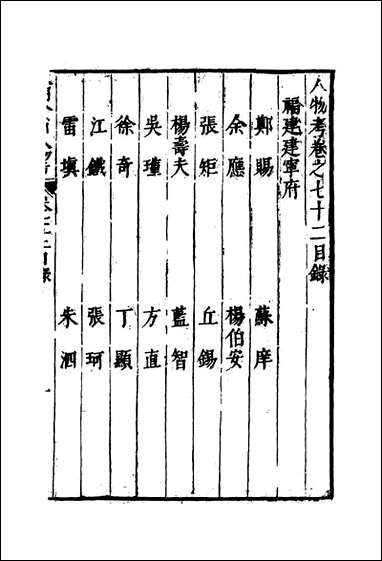 人物考卷之七十二目錄
福建建寧府
鄭賜　蘇庠
余應　楊伯安
張矩　丘錫
楊壽夫　藍智
吳瓊　方直
徐奇　丁顯
江鐵　張珂
雷塡　朱泗
目錄